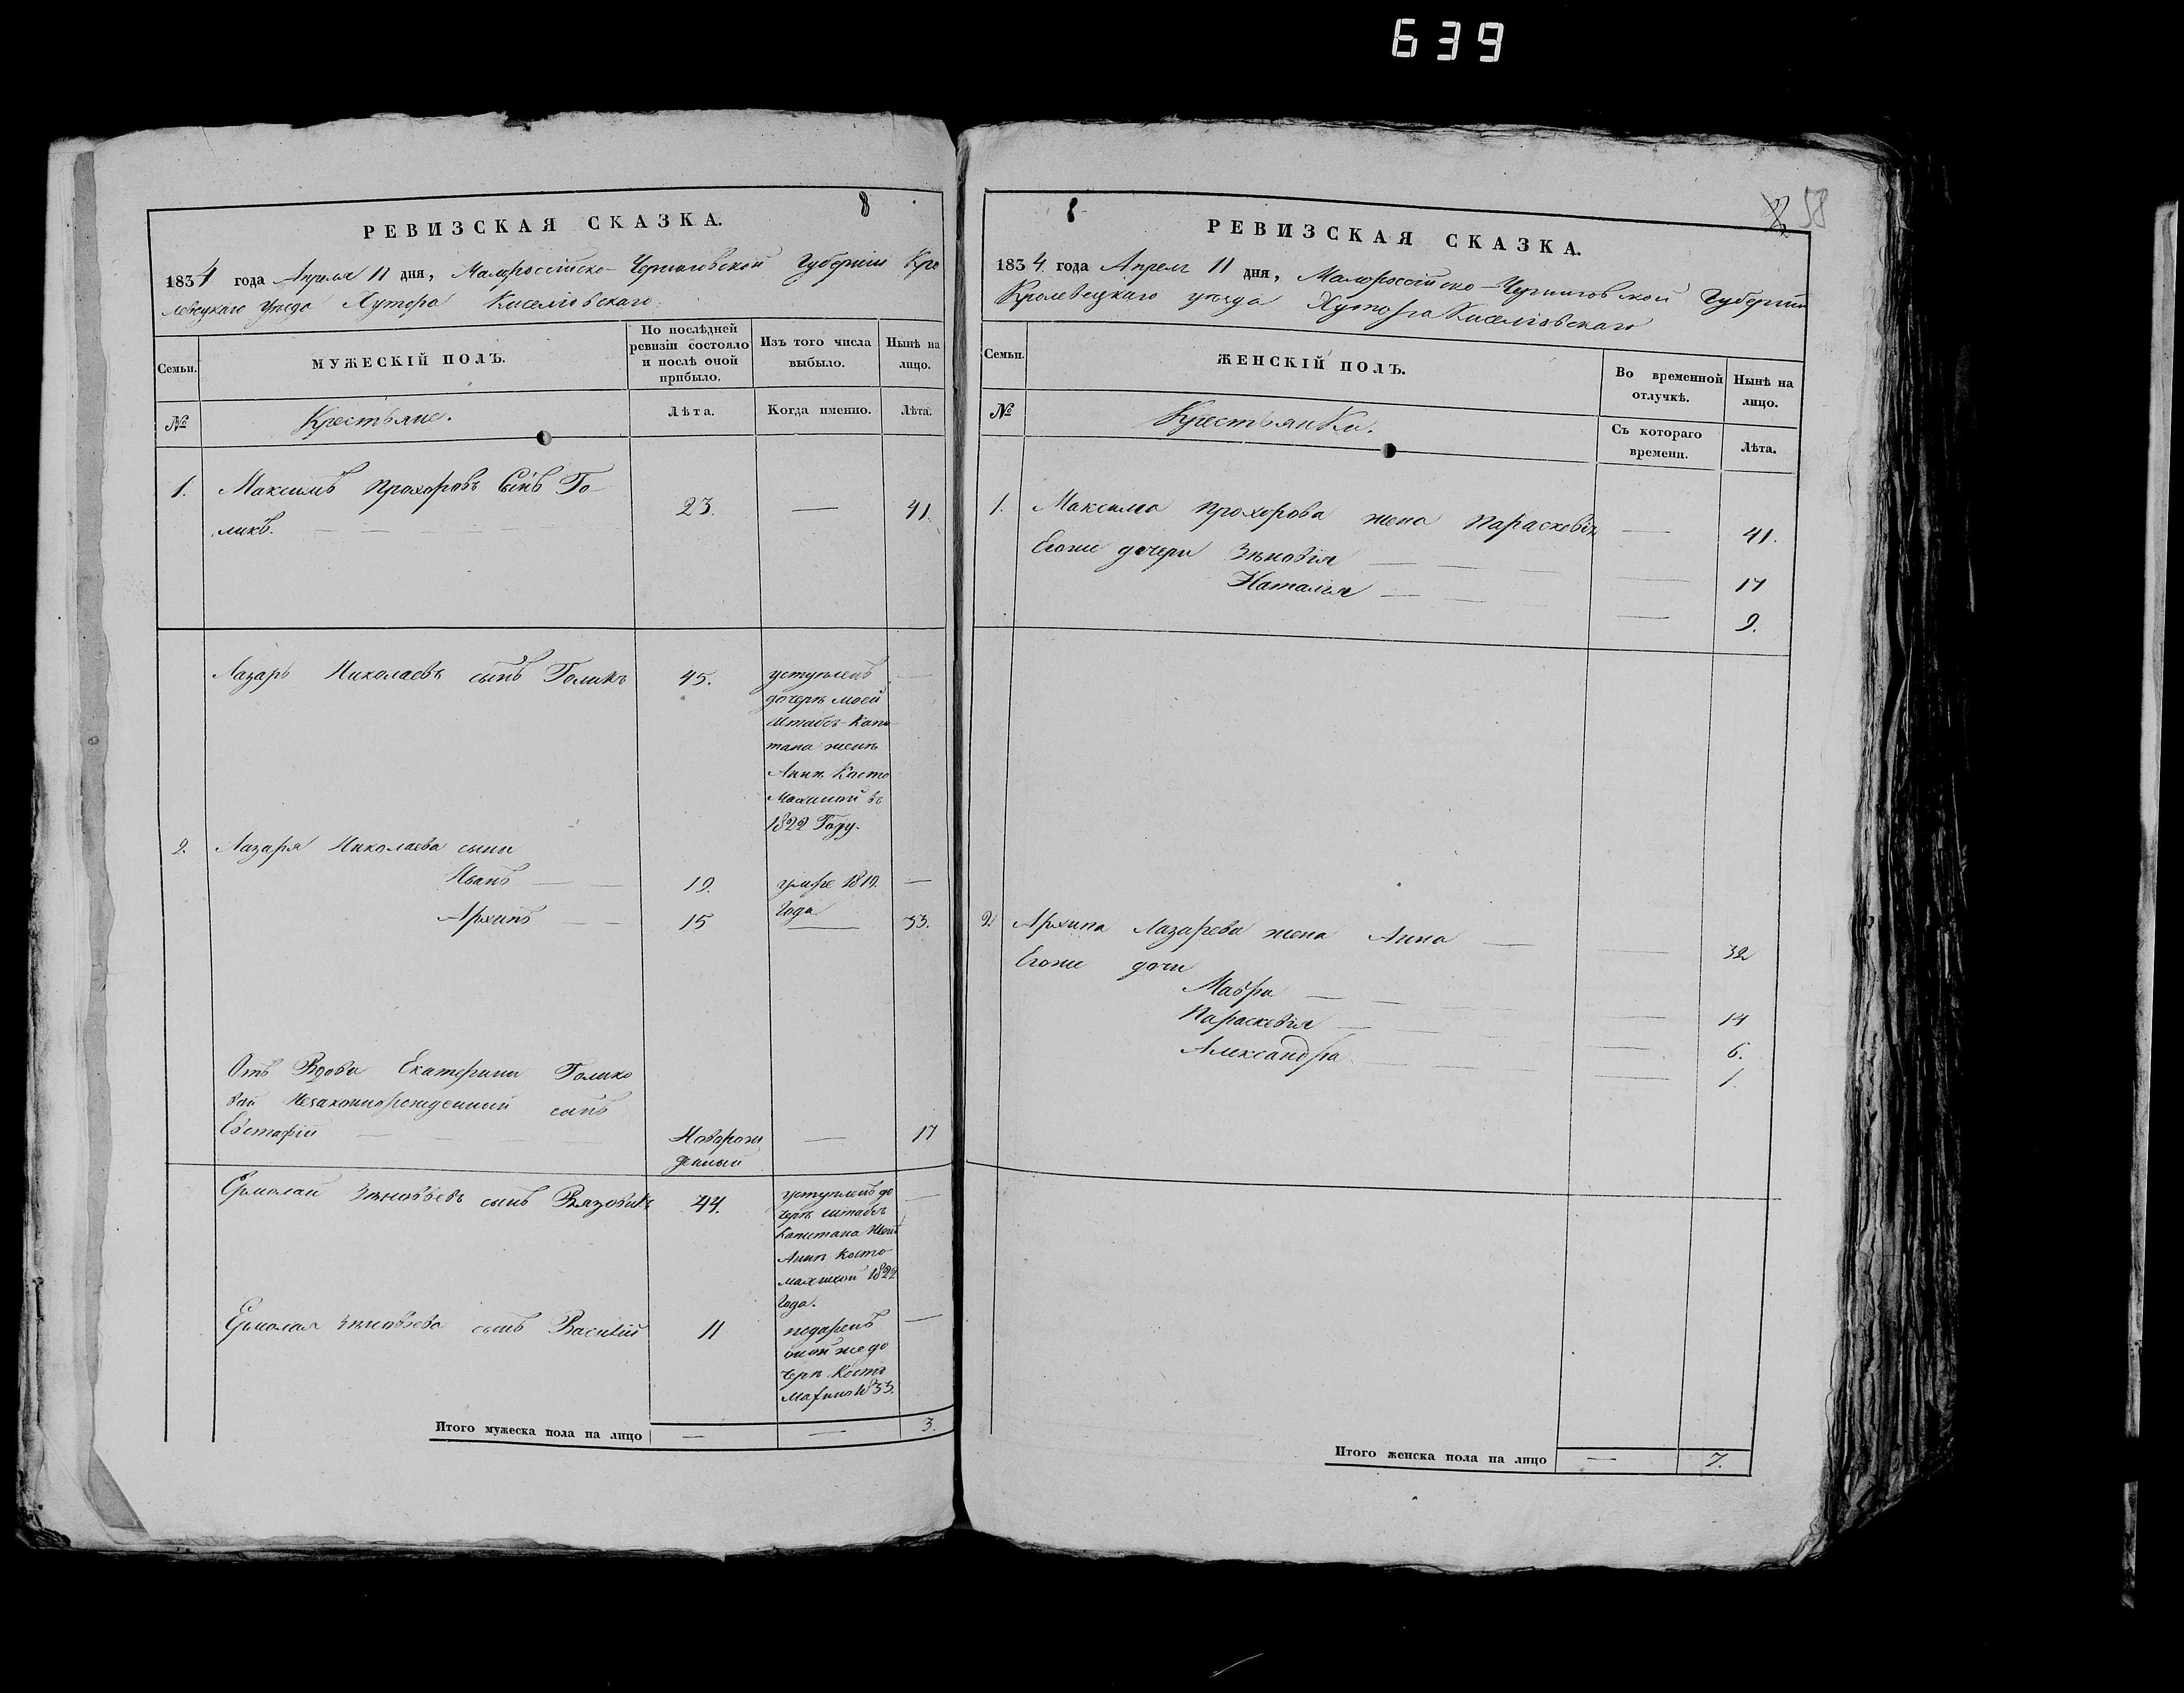 639
8
РЕВИЗСКАЯ СКАЗКА.
1834 года Апреля 11 дня, Малороссійско-Черниговской Губерніи Кро
левецкаго уезда Хутора Киселювскаго
Семьи.
МУЖЕСКІЙ ПОЛЪ.
По послѣдней ревизіи состояло и послѣ оной прибыло.
Изъ того числа выбыло.
Нынѣ на лицо.
№
Крестьяне.
Лѣта.
Когда именно.
Лѣта.
1. Максимъ Прохоровъ Сынъ Го 23. — 41.
ликъ.
Лазарь Николаевъ сынъ Голикъ 45. уступленъ —
дочерѣ моей
Штабсъ-Капи
тана женѣ
Аннѣ Косто
Махиной въ
1822 Году.
2. Лазаря Николаева сыни
Иванъ — — 19. умре 1819. —
Года
Архипъ — — 15 — 33.
Отъ Вдови Екатерини Голико
вой Незаконнорожденний синъ
Евстафій —Новорож — 17
денный
Ермолай Зѣновьевъ сынъ Вязовикъ 44. уступленъ до —
черѣ штабсъ
Капитана Женѣ
Аннѣ Косто
махиной 1822
Года.
Ермолая Зѣновьева сынъ Василій 11 подаренъ —
оной же до
черѣ Косто
1833.
Итого мужеска пола на лицо — — 3.
8
58
РЕВИЗСКАЯ СКАЗКА.
1834 года Апреля 11 дня, Малороссійско-Черниговской Губерніи
Кролевецкаго уезда Хутора Киселювскаго
Семьи.
ЖЕНСКІЙ ПОЛЪ.
Во временной отлучкѣ.
Нынѣ на лицо.
№
Крестьянки.
Съ котораго времени.
Лѣта.
1. Максима Прохорова жена Параскевія — 41.
Егоже дочери Зѣновія — 17
Наталья — 9.
2 Архипа Лазарева жена Анна — 32
Егоже дочи
Мавра — 14
Параскевія — 6.
Александра — 1.
Итого женска пола на лицо — 7.